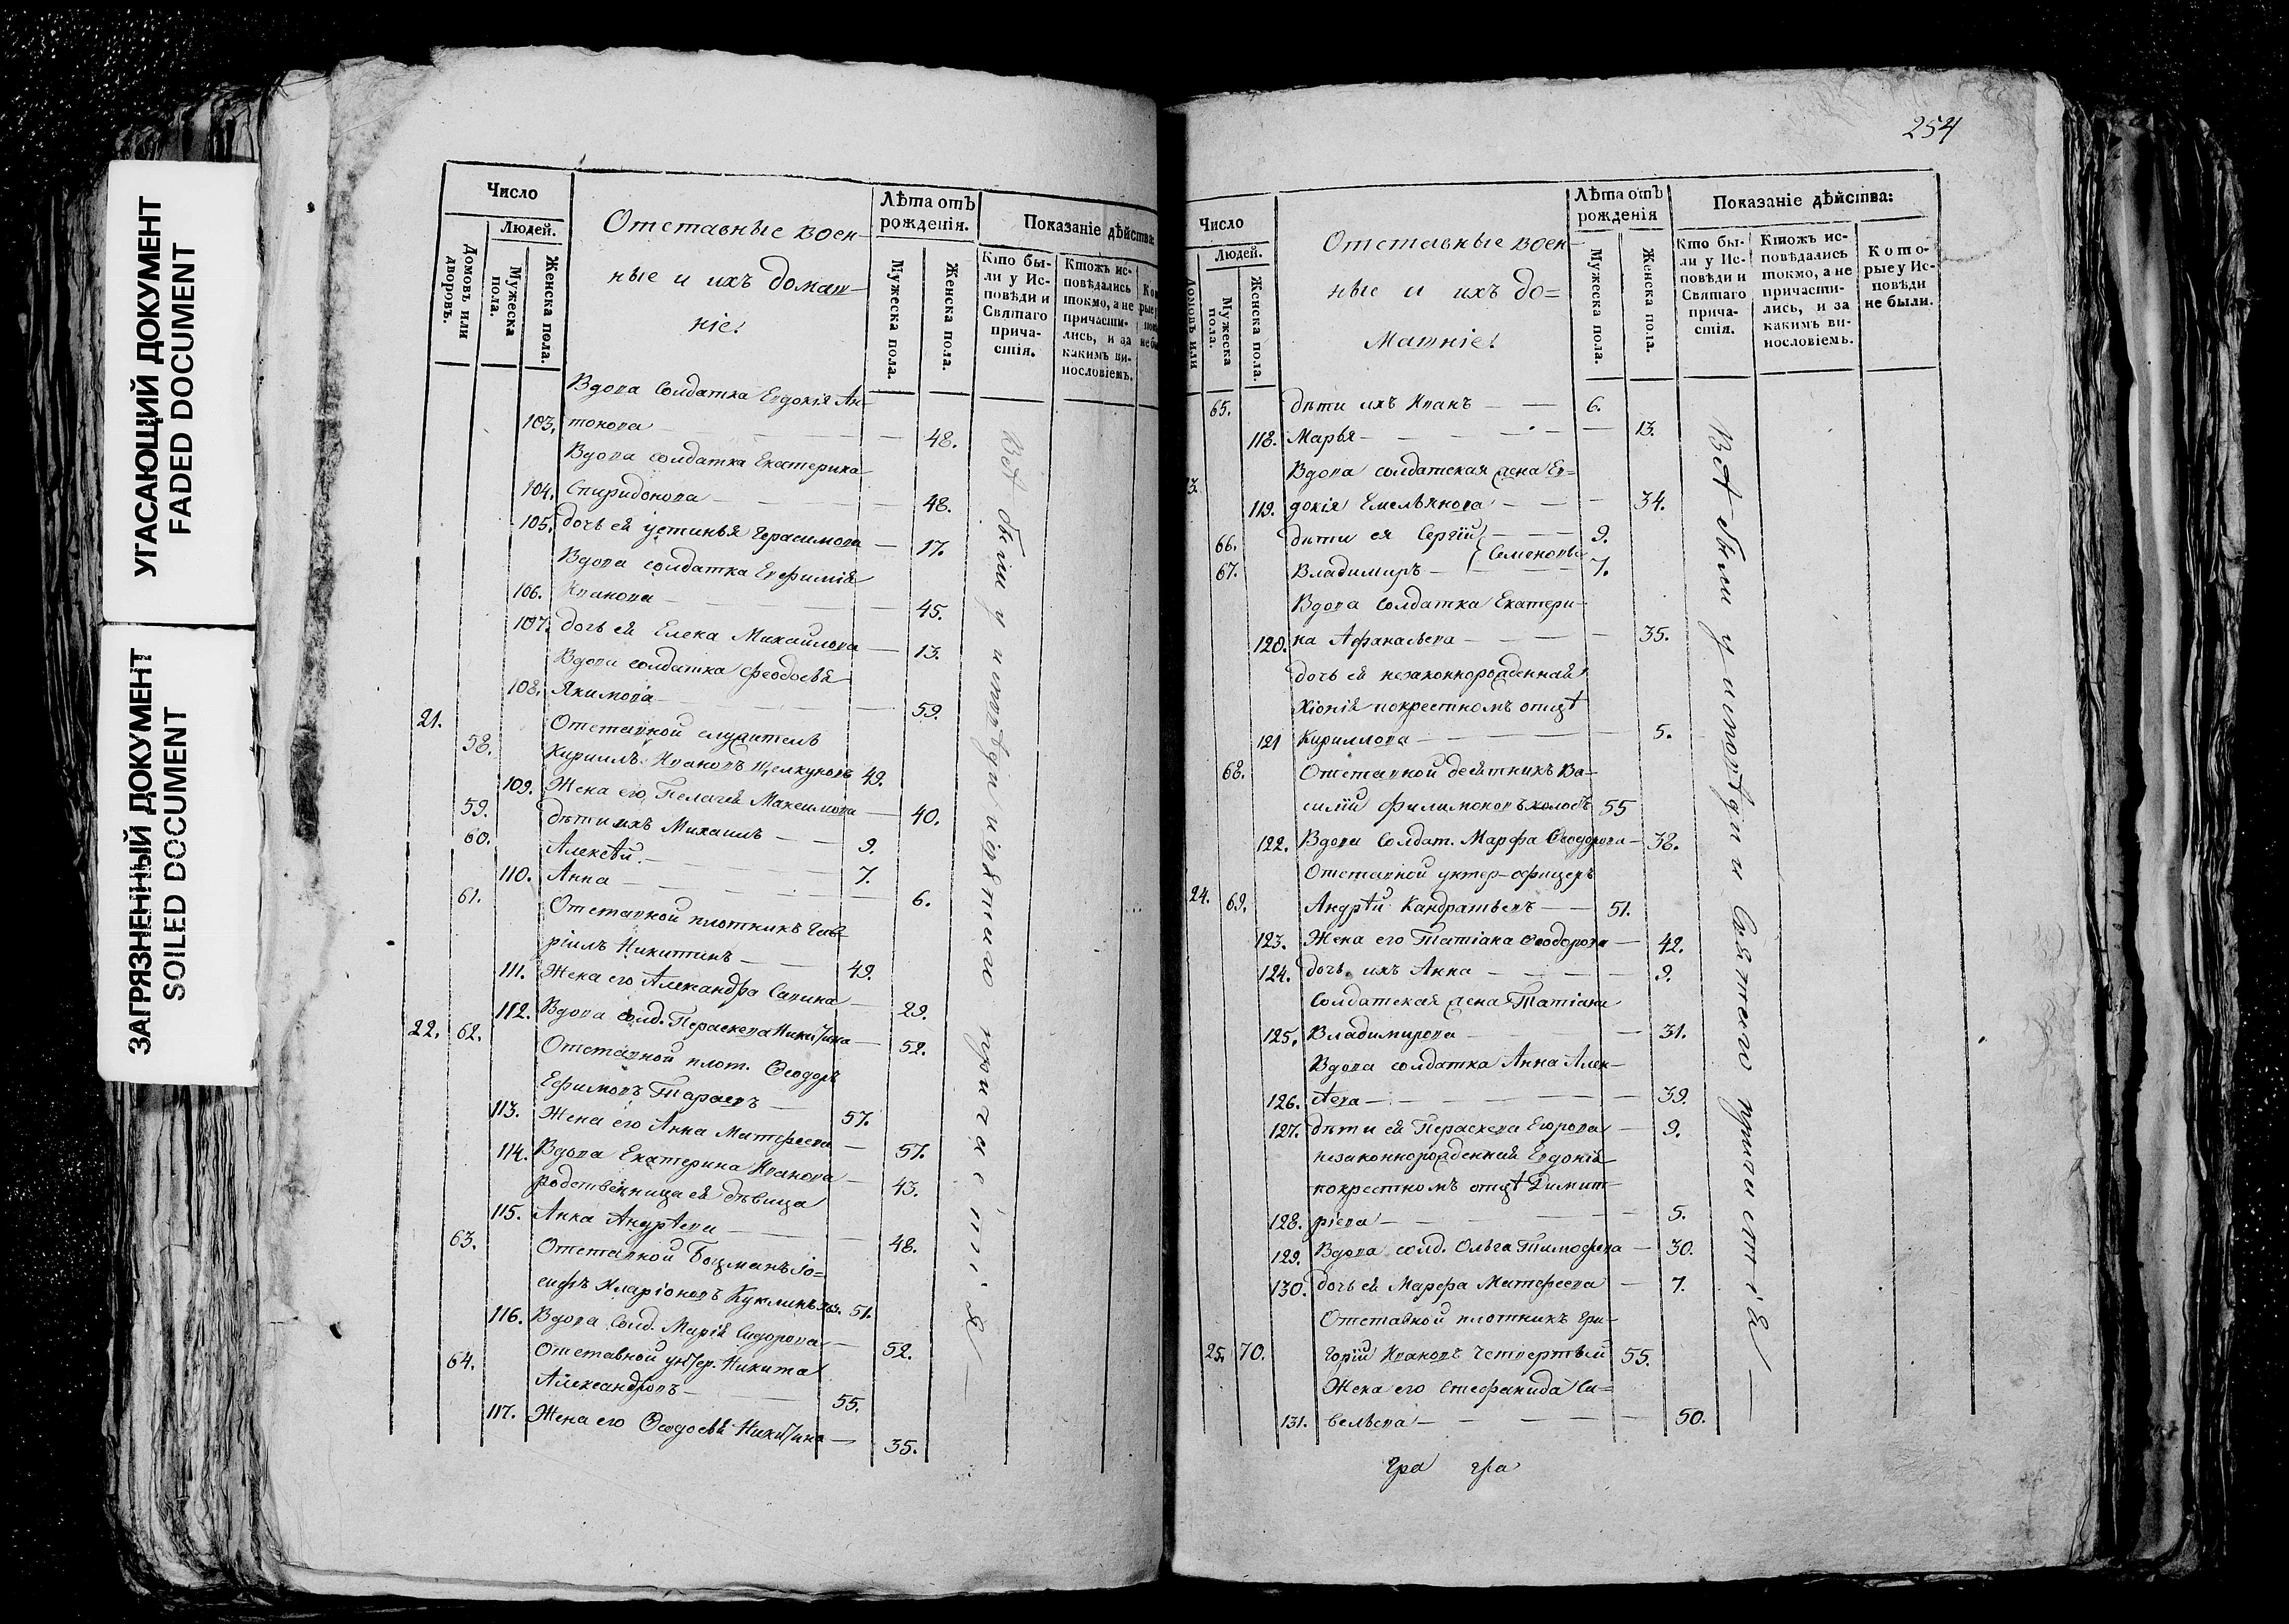 УГАСАЮЩИЙ ДОКУМЕНТ
FADED DOCUMENT
ЗАГРЯЗНЕННЫЙ ДОКУМЕНТ
SOILED DOCUMENT
Число
Людей.
Домовъ или дворовъ.
Мужеска пола.
Женска пола.
Отставные воен-
ные и ихъ домаш-
ніе:
Лѣта отъ рожденія.
Мужеска пола.
Женска пола.
Показаніе дѣйства:
Кто бы-
ли у Ис-
повѣди и
Святаго
прича-
стія.
Ктожъ ис-
повѣдались
токмо, а не
причасти-
лись, и за
какимъ ви-
нословіемъ.
Вдова Солдатка Евдокія Ан-
103. тонова — 48.
Вдова солдатка Екатерина
104. Спиридонова — 48.
105. дочь ея Устинья Герасимова — 17.
Вдова солдатка Евфимія
106. Иванова — 45.
107. дочь ея Елена Михайлова — 13.
Вдова солдатка Феодосья
108. Якимова — 59.
21. 58. Отставной служитель
Кириллъ Ивановъ Щелкуновъ 49.
109. Жена его Пелагея Максимова — 40.
59. дѣти ихъ Михаилъ — 9.
60. Алексѣй. — 7.
110. Анна — 6.
61. Отставной плотникъ Гав-
ріилъ Никитинъ — 49.
111. Жена его Александра Савина — 29.
112. Вдова солд. Параскева Никитина — 52.
22. 62. Отставной плот. Ѳеодоръ
Ефимовъ Тараевъ — 57.
113. Жена его Анна Матфеева — 57.
114. Вдова Екатерина Иванова — 43.
родственница ея дѣвица
115. Анна Андрѣева — 48.
63. Отставной Боцманъ Іо-
сифъ Иларіоновъ Куклинъ 51.
116. Вдова Солд. Марія Сидорова — 52.
64. Отставной унтер. Никита
Александровъ — 55.
117. Жена его Ѳеодосья Никитина — 35.
Всѣ были у исповѣди и святаго причастія —
254
Число
Людей.
Домовъ или
Мужеска пола.
Женска пола.
Отставные воен-
ные и ихъ до=
машніе:
Лѣта отъ рожденія
Мужеска пола.
Женска пола.
Показаніе дѣйства:
Кто бы-
ли у Ис-
повѣди и
Святаго
прича-
стія.
Ктожъ ис-
повѣдались
токмо, а не
причасти-
лись, и за
какимъ ви-
нословіемъ.
Кото-
рые у Ис-
повѣди
не были.
65. дѣти ихъ Иванъ — — 6.
118. Марья — 13.
Вдова солдатская жена Ев=
119. докія Емельянова — 34.
66. дѣти ея Сергій — 9.
Семеновы
67. Владимиръ — 7.
Вдова Солдатка Екатери-
120. на Афанасьева — 35.
дочь ея незаконнорожденная
Хіонія покрестномъ отцѣ
121 Кириллова — 5.
68. Отставной десятникъ Ва-
силій Филимоновъ холостъ 55
122. Вдова Солдат. Марфа Ѳеодорова — 38.
Отставной унтер-офицеръ
24. 69. Андрѣй Кандратьевъ — 51.
123. Жена его Татіана Ѳеодорова — 42.
124. дочь ихъ Анна — 9.
Солдатская жена Татіана
125. Владимирова — 31.
Вдова солдатка Анна Алек-
126. сѣева — 39.
127. дѣти ея Параскева Егорова — 9.
незаконнорожденная Евдокія
покрестномъ отцѣ Димит-
128. ріева — 5.
129. Вдова солд. Ольга Тимофева — 30.
130. дочь ея Марфа Матфеева — 7.
Отставной плотникъ Гри-
25. 70. горій Ивановъ Четвертый 55.
Жена его Стефанида Са=
131. вельева — 50.
Всѣ были у исповѣди и Святаго причастія —